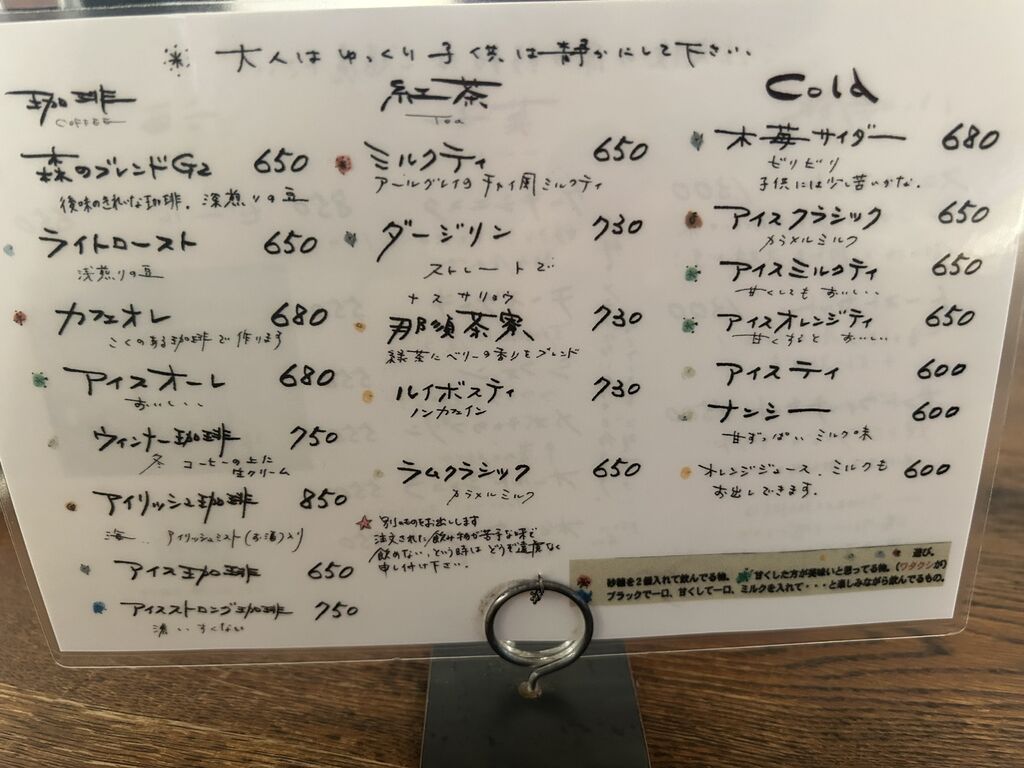 大人はゆっくり子供は静かにして下さい。
珈琲
COFFEE
森のブレンドG2 650
後味のきれいな珈琲、深煎りの豆
ライトロースト 650
浅煎りの豆
カフェオレ 680
こくのある珈琲で作ります
アイスオーレ 680
おいしい、、
ウィンナー珈琲 750
冬 コーヒーの上に
生クリーム
アイリッシュ珈琲 850
アイリッシュミスト(お酒)入り
アイス珈琲 650
アイスストロング珈琲 750
濃い すくない
紅茶
Tea
ミルクティ 650
アールグレイのチャイ風ミルクティ
ダージリン 730
ストレートで
ナスサリョウ
那須茶寮 730
緑茶にベリーの香りをブレンド
ルイボスティ 730
ノンカフェイン
ラムクラシック 650
カラメルミルク
別のものをお出しします
注文された飲み物が苦手な味で
飲めない、という時は どうぞ遠慮なく
申し付け下さい。
Cold
木苺サイダー 680
ビリビリ
子供には少し苦いかな。
アイスクラシック 650
カラメルミルク
アイスミルクティ 650
甘くしても おいしい、、
アイスオレンジティ 650
甘くすると おいしい
アイスティ 600
ナンシー 600
甘ずっぱい ミルク味
オレンジジュース、ミルクも 600
お出しできます。
遊び。
砂糖を2個入れて飲んでる物。 甘くした方が美味いと思ってる物。(ワタクシが)
ブラックで一口、甘くして一口、ミルクを入れて・・・と楽しみながら飲んでるもの。